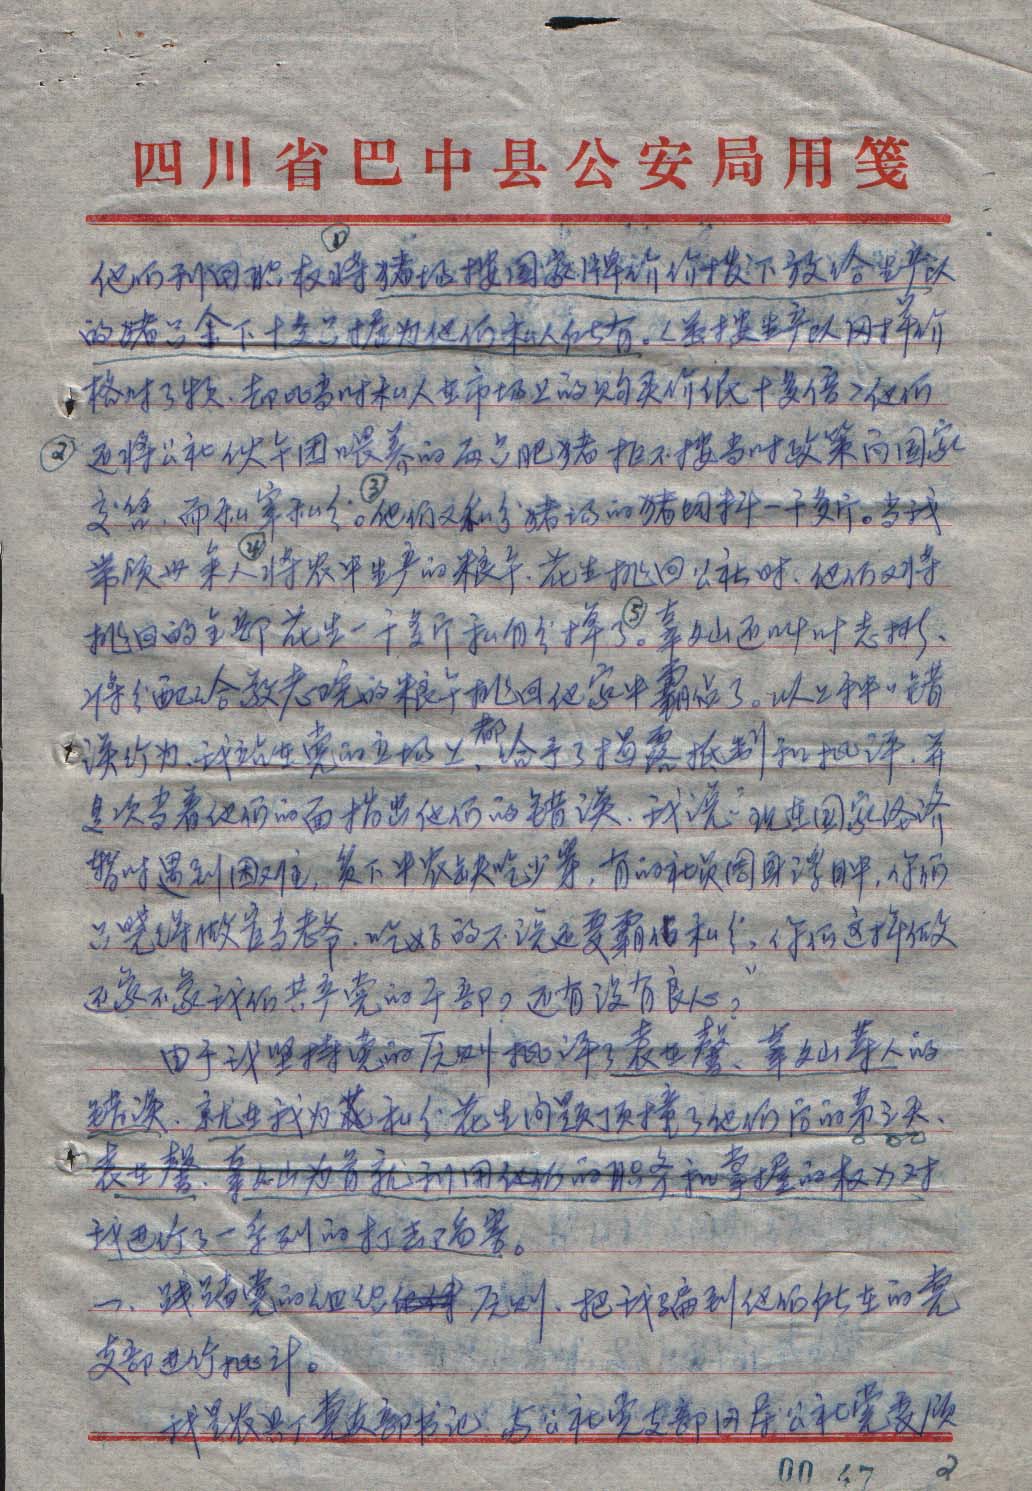 四川省巴中县公安局用笺
他们利用职权①将猪场按国家牌价价拨下放给生产队
的猪只余下十多只据为他们私人所有。(虽按生产队同样价
格付了款、却比当时私人在市场上的购买价低十多倍)他们
②还将公社伙午团喂养的两只肥猪拒不按当时政策向国家
交售,而私宰私分。③他们又私分猪场的猪饲料一千多斤。当我
带领廿余人④将农中生产的粮午、花生挑回公社时、他们又将
挑回的全部花生一千多斤私自分掉了。⑤辜文山还叫叶志彬、
将分配给敬老院的粮午挑回他家中霸占了。以上种种错
误行为、我站在党的立场上、都给予了揭露抵制和批评、并
多次当着他们的面指出他们的错误、我说:“现在国家经济
暂时遇到困难,贫下中农缺吃少穿,有的社员周身浮肿,你们
只晓得做官当老爷、吃好的不说还要霸占私分,你们这样做
还象不象我们共产党的干部?还有没有良心?”
由于我坚持党的原则批评了袁世馨、辜文山等人的
错误、就在我为私分花生问题顶撞了他们后的第三天、
袁世馨、辜文山为首就利用他们的职务和掌握的权力对
我进行了一系列的打击陷害。
一、践踏党的组织原则、把我骗到他们所在的党
支部进行批斗。
我是农具厂党支部书记、与公社党支部同属公社党委领
00 47 2